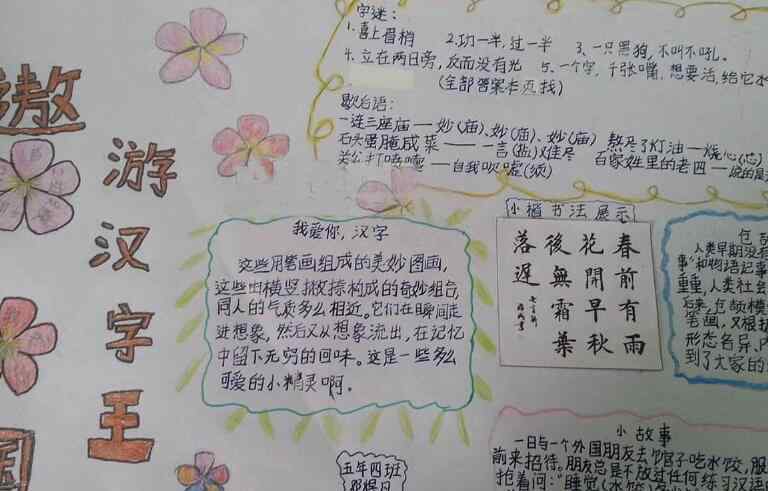 遨
游
汉
字
王
国
字迷：
1.喜上眉梢 2.功一半，过一半 3、一只黑狗，不叫不吼。
4.立在两日旁，反而没有光 5、一个字，千张嘴，想要活，给它
(全部答案本页找)
歇后语：
一连三座庙——妙(庙)、妙(庙)、妙(庙) 熬尽了灯油—烧心(芯)
石头蛋腌咸菜——一言(盐)难尽 百家姓里的老四—
关公打喷嚏——自我吹嘘(须)
我爱你，汉字
这些用笔画组成的美妙图画，
这些由横竖撇捺构成的奇妙组合，
同人的气质多么相近。它们在瞬间走
进想象，然后又从想象流出，在记忆
中留下无穷的回味。这是一些多么
可爱的小精灵啊。
小楷书法展示
春前有雨
花開早秋
後無霜葉
落遲
人类早期没有
事"和物语记事
重重，人类社会
后来，仓颉模
笔画，又根据
形态各异、内
到了大家的
五年四班
小故事
一日与一个外国朋友去饺子馆吃水饺，服
前来招待。朋友总是不放过任何练习汉语
抢着问："睡觉(水饺)